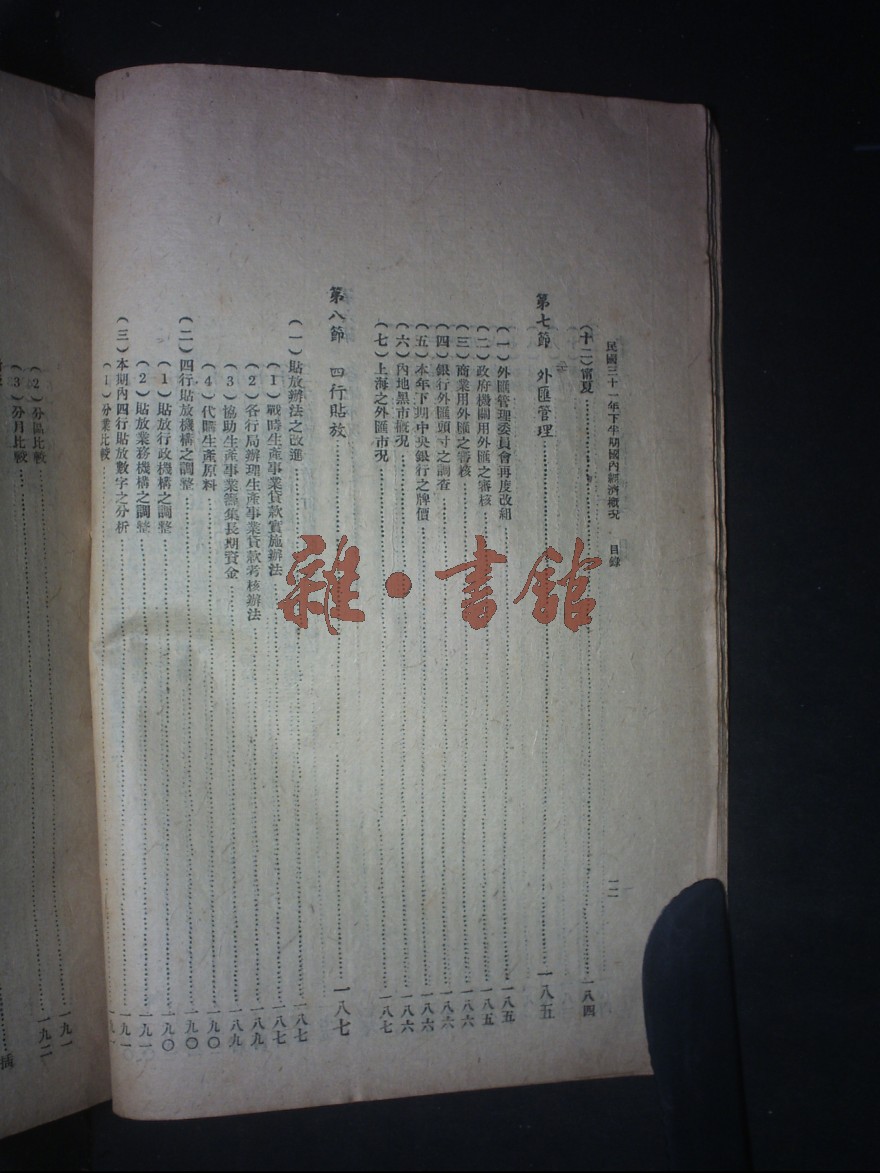 民國三十一年下半期國內經濟概況 目錄 一二
(十二)甯夏……一八四
第七節 外匯管理……一八五
(一)外匯管理委員會再度改組……一八五
(二)政府機關用外匯之審核……一八五
(三)商業用外匯之審核……一八六
(四)銀行外匯頭寸之調查……一八六
(五)本年下期中央銀行之牌價……一八六
(六)內地黑市概況……一八六
(七)上海之外匯市況……一八七
第八節 四行貼放……一八七
(一)貼放辦法之改進……一八七
(1)戰時生產事業貸款實施辦法……一八七
(2)各行局辦理生產事業貸款考核辦法……一八九
(3)協助生產事業籌集長期資金……一八九
(4)代購生產原料……一九〇
(二)四行貼放機構之調整……一九〇
(1)貼放行政機構之調整……一九〇
(2)貼放業務機構之調整……一九一
(三)本期內四行貼放數字之分析……一九一
(1)分業比較……一九一
(2)分區比較……一九一
(3)分月比較……一九二
插
雜·書館